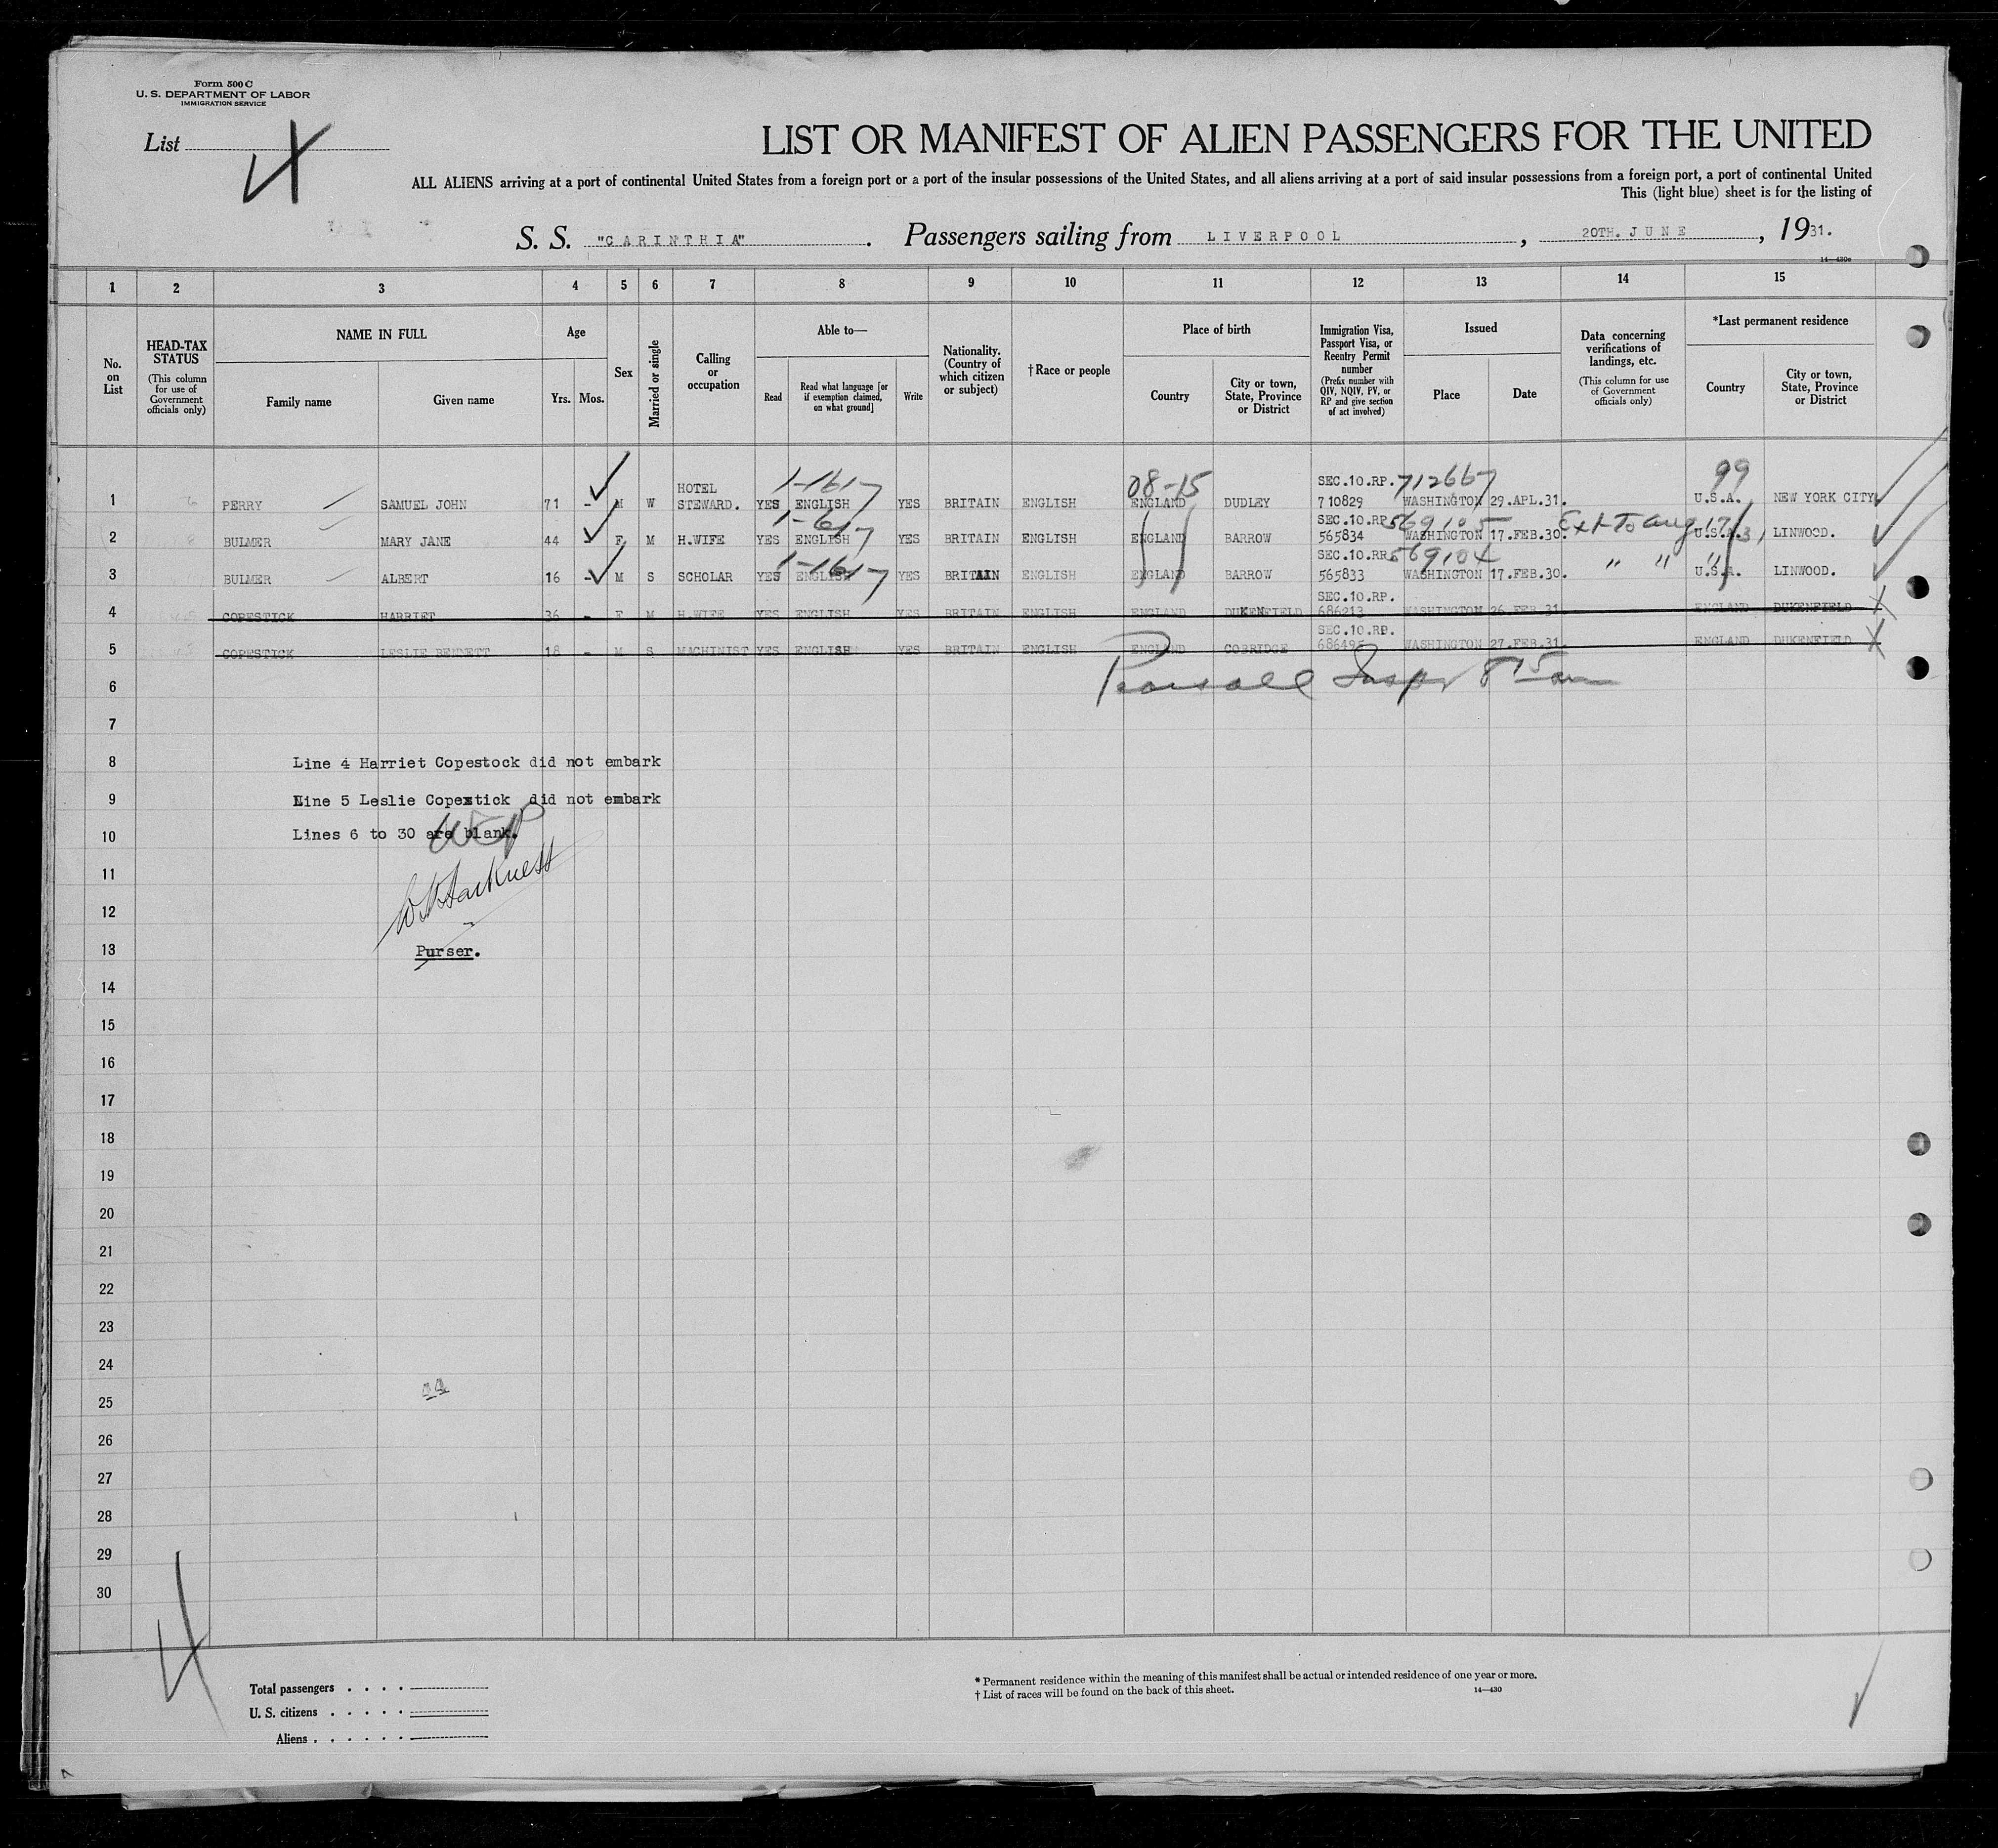 Form 500 C
U. S. DEPARTMENT OF LABOR
IMMIGRATION SERVICE
List 4
LIST OR MANIFEST OF ALIEN PASSENGERS FOR THE UNITED
ALL ALIENS arriving at a port of continental United States from a foreign port or a port of the insular possessions of the United States, and all aliens arriving at a port of said insular possessions from a foreign port, a port of continental United
This (light blue) sheet is for the listing of
S. S. "CARINTHIA". Passengers sailing from LIVERPOOL, 20TH. JUNE, 1931.
14—430c
1 2 3 4 5 6 7 8 9 10 11 12 13 14 15
No. on List
HEAD-TAX STATUS
(This column for use of Government officials only)
NAME IN FULL
Family name
Given name
Age
Yrs. Mos.
Sex
Married or single
Calling or occupation
Able to—
Read
Read what language [or if exemption claimed, on what ground]
Write
Nationality. (Country of which citizen or subject)
†Race or people
Place of birth
Country
City or town, State, Province or District
Immigration Visa, Passport Visa, or Reentry Permit number
(Prefix number with QIV, NQIV, PV, or RP and give section of act involved)
Issued
Place
Date
Data concerning verifications of landings, etc.
(This column for use of Government officials only)
*Last permanent residence
Country
City or town, State, Province or District
HOTEL 1-1617 08-15 SEC.10.RP. 712667 99
1 PERRY SAMUEL JOHN 71 - M W STEWARD. YES ENGLISH YES BRITAIN ENGLISH ENGLAND DUDLEY 710829 WASHINGTON 29.APL.31. U.S.A. NEW YORK CITY
1-617 SEC.10.RP. 569105 Ext To Aug 17/31
2 BULMER MARY JANE 44 - F M H.WIFE YES ENGLISH YES BRITAIN ENGLISH ENGLAND BARROW 565834 WASHINGTON 17.FEB.30. U.S.A. LINWOOD.
1-1617 SEC.10.RP. 569104 " " "
3 BULMER ALBERT 16 - M S SCHOLAR YES ENGLISH YES BRITAIN ENGLISH ENGLAND BARROW 565833 WASHINGTON 17.FEB.30. U.S.A. LINWOOD.
SEC.10.RP.
4 COPESTICK HARRIET 36 - F M H.WIFE YES ENGLISH YES BRITAIN ENGLISH ENGLAND DUKENFIELD 686213 WASHINGTON 26.FEB.31. ENGLAND DUKENFIELD X
SEC.10.RP.
5 COPESTICK LESLIE BENNETT 18 - M S MACHINIST YES ENGLISH YES BRITAIN ENGLISH ENGLAND COBRIDGE 686495 WASHINGTON 27.FEB.31. ENGLAND DUKENFIELD X
6 Insp
7
8 Line 4 Harriet Copestock did not embark
9 Line 5 Leslie Copestick did not embark
10 Lines 6 to 30 are blank.
WEP
11
12
13 Purser.
14
15
16
17
18
19
20
21
22
23
24
25 44
26
27
28
29
30
4
Total passengers . . . .
U. S. citizens . . . . .
Aliens . . . . . .
* Permanent residence within the meaning of this manifest shall be actual or intended residence of one year or more.
† List of races will be found on the back of this sheet.
14—430